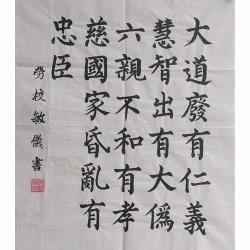 大道廢有仁義
慧智出有大僞
六親不和有孝
慈國家昏亂有
忠臣
勞校敏儀書